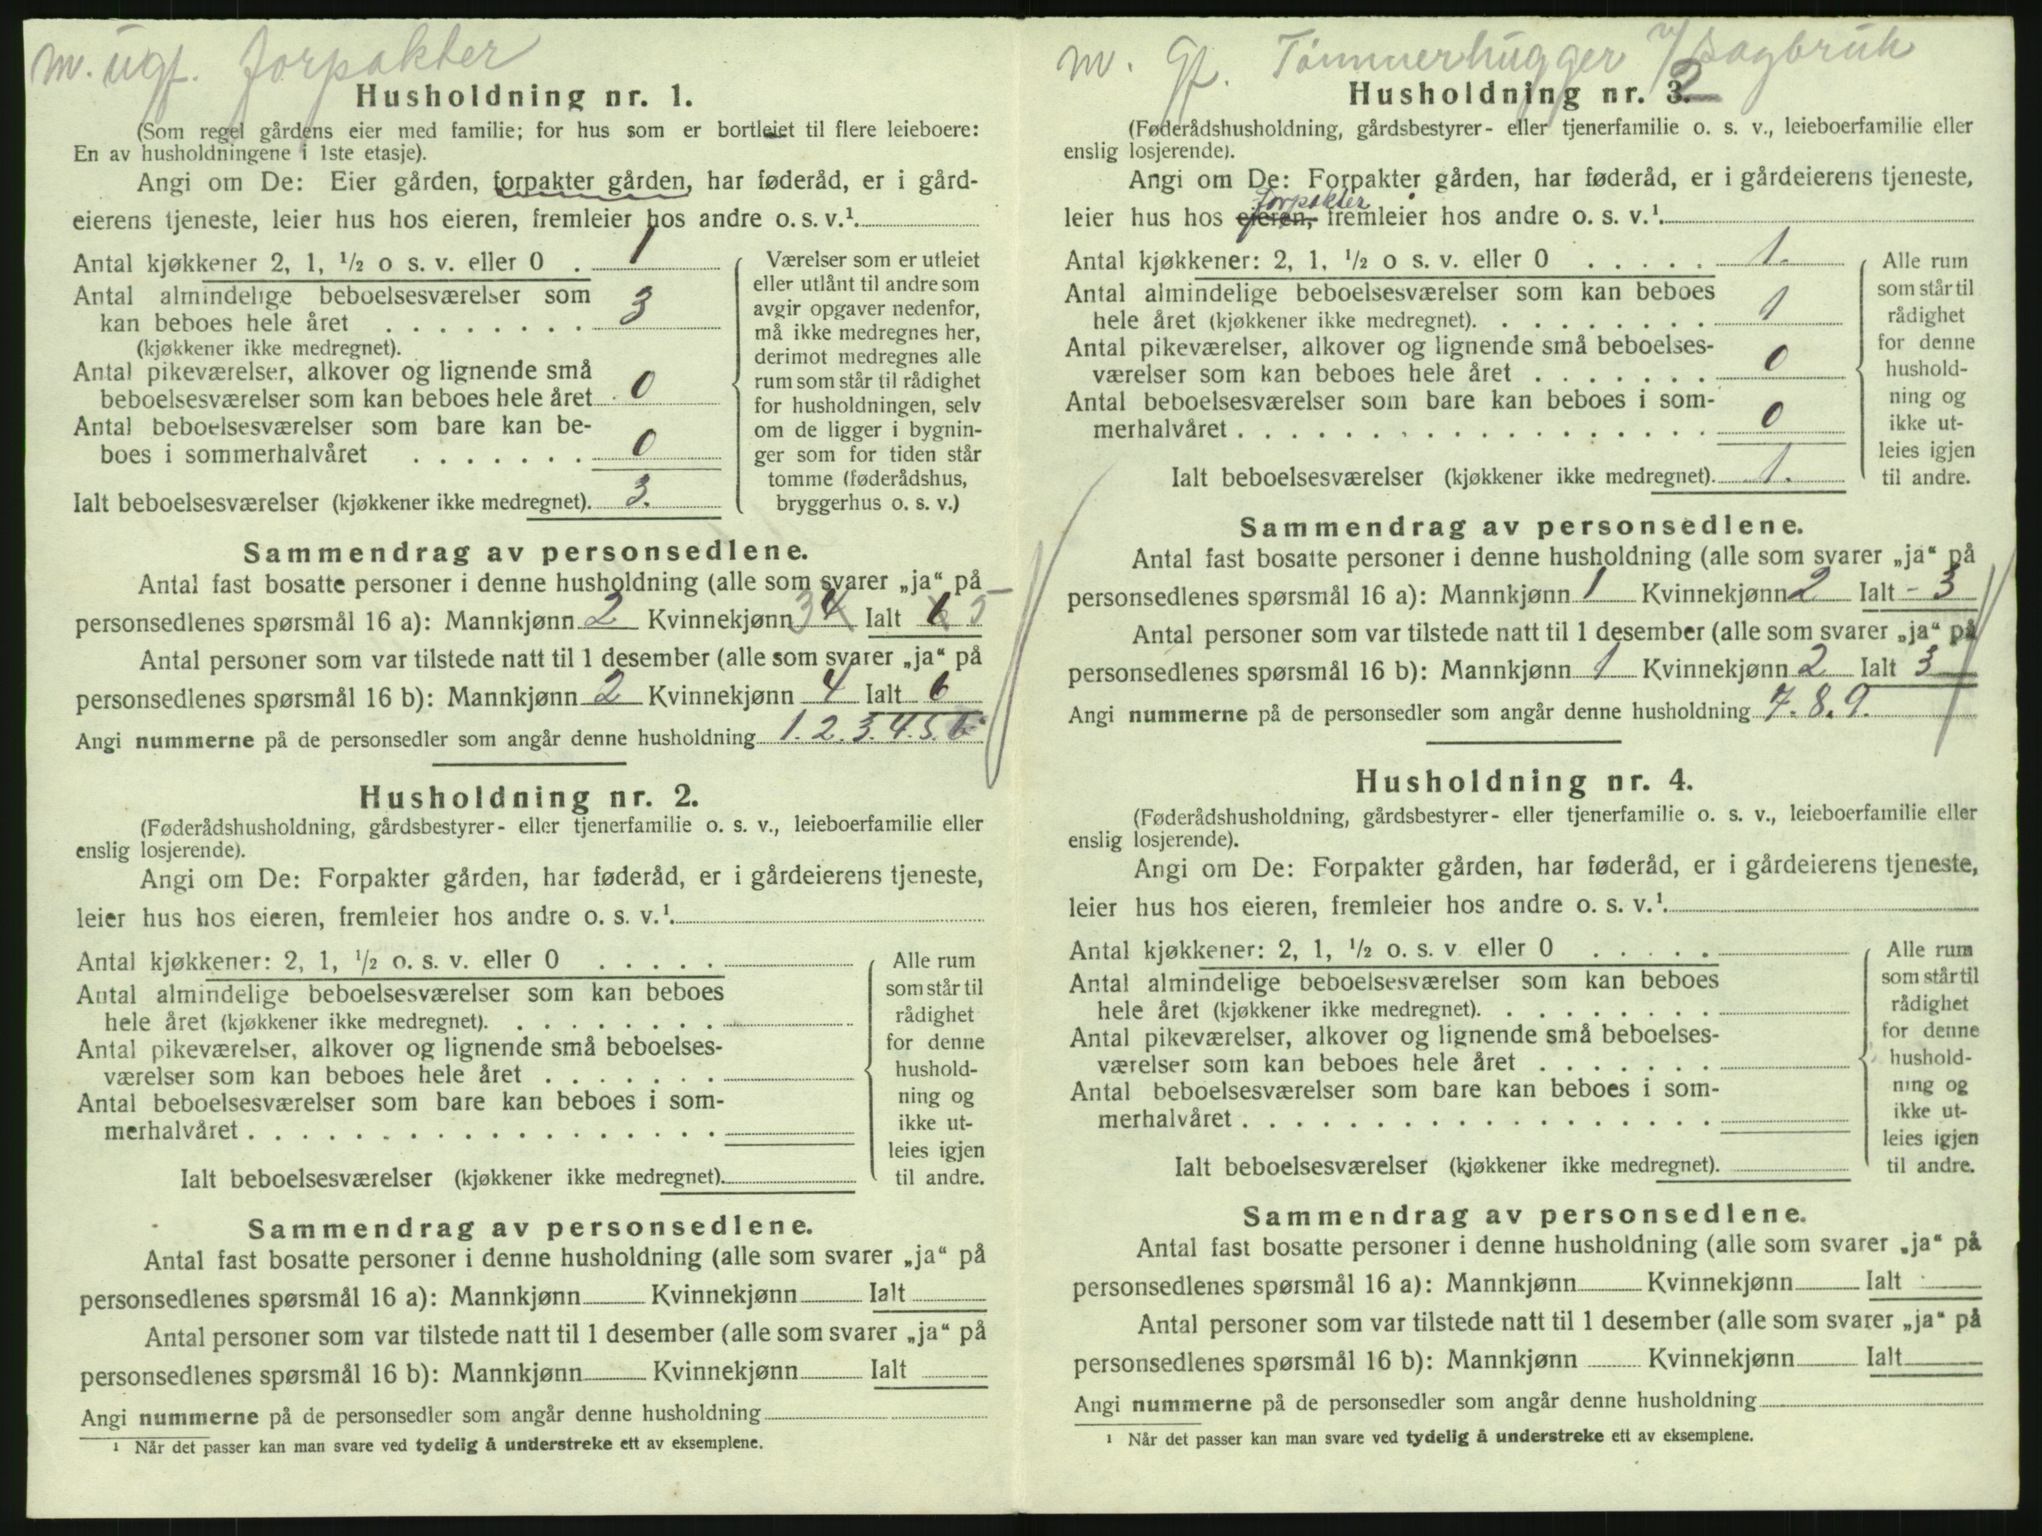 m. ugf. forpakter
Husholdning nr. 1.
(Som regel gårdens eier med familie; for hus som er bortleiet til flere leieboere:
En av husholdningene i 1ste etasje).
Angi om De: Eier gården, forpakter gården, har føderåd, er i gård-
eierens tjeneste, leier hus hos eieren, fremleier hos andre o. s. v.¹.
Antal kjøkkener 2, 1, ½ o s. v. eller 0 . 1
Antal almindelige beboelsesværelser som
kan beboes hele året . . . . . . . . 3
(kjøkkener ikke medregnet).
Antal pikeværelser, alkover og lignende små
beboelsesværelser som kan beboes hele året 0
Antal beboelsesværelser som bare kan be-
boes i sommerhalvåret . . . . . . . 0
Ialt beboelsesværelser (kjøkkener ikke medregnet). 3.
Værelser som er utleiet
eller utlånt til andre som
avgir opgaver nedenfor,
må ikke medregnes her,
derimot medregnes alle
rum som står til rådighet
for husholdningen, selv
om de ligger i bygnin-
ger som for tiden står
tomme (føderådshus,
bryggerhus o. s. v.)
Sammendrag av personsedlene.
Antal fast bosatte personer i denne husholdning (alle som svarer „ja“ på
personsedlenes spørsmål 16 a): Mannkjønn 2 Kvinnekjønn 3 4 Ialt 6 5
Antal personer som var tilstede natt til 1 desember (alle som svarer „ja“ på
personsedlenes spørsmål 16 b): Mannkjønn 2 Kvinnekjønn 4 Ialt 6
Angi nummerne på de personsedler som angår denne husholdning 1. 2. 3. 4. 5. 6.
Husholdning nr. 2.
(Føderådshusholdning, gårdsbestyrer- eller tjenerfamilie o. s. v., leieboerfamilie eller
enslig losjerende).
Angi om De: Forpakter gården, har føderåd, er i gårdeierens tjeneste,
leier hus hos eieren, fremleier hos andre o. s. v.¹.
Antal kjøkkener: 2, 1, ½ o. s. v. eller 0 . . . . .
Antal almindelige beboelsesværelser som kan beboes
hele året (kjøkkener ikke medregnet). . . . . . . . .
Antal pikeværelser, alkover og lignende små beboelses-
værelser som kan beboes hele året . . . . . . .
Antal beboelsesværelser som bare kan beboes i som-
merhalvåret . . . . . . . . . . . . . . . . . .
Ialt beboelsesværelser (kjøkkener ikke medregnet).
Alle rum
som står til
rådighet
for denne
hushold-
ning og
ikke ut-
leies igjen
til andre.
Sammendrag av personsedlene.
Antal fast bosatte personer i denne husholdning (alle som svarer „ja“ på
personsedlenes spørsmål 16 a): Mannkjønn Kvinnekjønn Ialt
Antal personer som var tilstede natt til 1 desember (alle som svarer „ja“ på
personsedlenes spørsmål 16 b): Mannkjønn Kvinnekjønn Ialt
Angi nummerne på de personsedler som angår denne husholdning
¹ Når det passer kan man svare ved tydelig å understreke ett av eksemplene.
m. Gf. Tømmerhugger v/ sagbruk
Husholdning nr. 3. 2
(Føderådshusholdning, gårdsbestyrer- eller tjenerfamilie o. s. v., leieboerfamilie eller
enslig losjerende).
Angi om De: Forpakter gården, har føderåd, er i gårdeierens tjeneste,
forpakter
leier hus hos eieren, fremleier hos andre o. s. v.¹.
Antal kjøkkener: 2, 1, ½ o s. v. eller 0 . . . . . 1.
Antal almindelige beboelsesværelser som kan beboes
hele året (kjøkkener ikke medregnet). . . . . . . . . 1
Antal pikeværelser, alkover og lignende små beboelses-
værelser som kan beboes hele året . . . . . . . 0
Antal beboelsesværelser som bare kan beboes i som-
merhalvåret . . . . . . . . . . . . . . . . . . 0
Ialt beboelsesværelser (kjøkkener ikke medregnet). 1.
Alle rum
som står til
rådighet
for denne
hushold-
ning og
ikke ut-
leies igjen
til andre.
Sammendrag av personsedlene.
Antal fast bosatte personer i denne husholdning (alle som svarer „ja“ på
personsedlenes spørsmål 16 a): Mannkjønn 1 Kvinnekjønn 2 Ialt - 3
Antal personer som var tilstede natt til 1 desember (alle som svarer „ja“ på
personsedlenes spørsmål 16 b): Mannkjønn 1 Kvinnekjønn 2 Ialt 3
Angi nummerne på de personsedler som angår denne husholdning 7. 8. 9.
Husholdning nr. 4.
(Føderådshusholdning, gårdsbestyrer- eller tjenerfamilie o. s. v., leieboerfamilie eller
enslig losjerende).
Angi om De: Forpakter gården, har føderåd, er i gårdeierens tjeneste,
leier hus hos eieren, fremleier hos andre o. s. v.¹.
Antal kjøkkener: 2, 1, ½ o. s. v eller 0 . . . . .
Antal almindelige beboelsesværelser som kan beboes
hele året (kjøkkener ikke medregnet). . . . . . . . .
Antal pikeværelser, alkover og lignende små beboelses-
værelser som kan beboes hele året . . . . . . .
Antal beboelsesværelser som bare kan beboes i som-
merhalvåret . . . . . . . . . . . . . . . . . .
Ialt beboelsesværelser (kjøkkener ikke medregnet).
Alle rum
som står til
rådighet
for denne
hushold-
ning og
ikke ut-
leies igjen
til andre.
Sammendrag av personsedlene.
Antal fast bosatte personer i denne husholdning (alle som svarer „ja“ på
personsedlenes spørsmål 16 a): Mannkjønn Kvinnekjønn Ialt
Antal personer som var tilstede natt til 1 desember (alle som svarer „ja“ på
personsedlenes spørsmål 16 b): Mannkjønn Kvinnekjønn Ialt
Angi nummerne på de personsedler som angår denne husholdning
¹ Når det passer kan man svare ved tydelig å understreke ett av eksemplene.